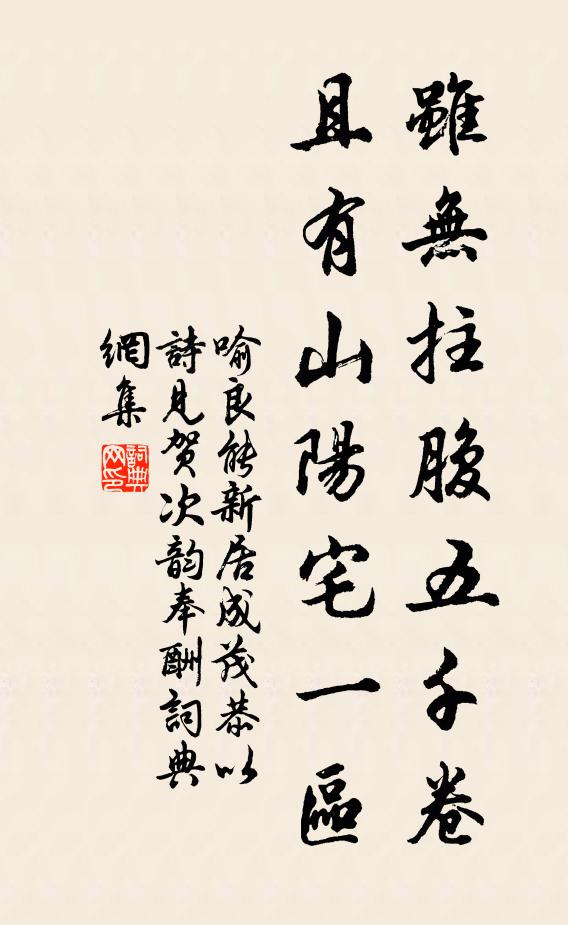 雖無拄腹五千卷
且有山陽宅一區
喻良能新居成茂恭以
詩見賀次韵奉酬詞典
網集
詞典网印